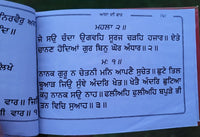 ਆਸਾ ਦੀ ਵਾਰ
ਮਹਲਾ ੨॥
ਜੇ ਸਉ ਚੰਦਾ ਉਗਵਹਿ ਸੂਰਜ ਚੜਹਿ ਹਜਾਰ॥ ਏਤੇ
ਚਾਨਣ ਹੋਦਿਆਂ ਗੁਰ ਬਿਨੁ ਘੋਰ ਅੰਧਾਰ॥੨॥
ਮ: ੧॥
ਨਾਨਕ ਗੁਰੂ ਨ ਚੇਤਨੀ ਮਨਿ ਆਪਣੈ ਸੁਚੇਤ॥ ਛੁਟੇ ਤਿਲ
ਬੂਆੜ ਜਿਉ ਸੁੰਞੇ ਅੰਦਰਿ ਖੇਤ॥ ਖੇਤੈ ਅੰਦਰਿ ਛੁਟਿਆ
ਕਹੁ ਨਾਨਕ ਸਉ ਨਾਹ॥ ਫਲੀਅਹਿ ਫੁਲੀਅਹਿ ਬਪੁੜੇ ਭੀ
ਤਨ ਵਿਚਿ ਸੁਆਹ॥੩॥